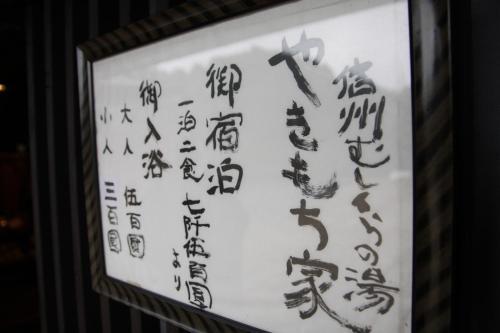 信州むしくらの湯
やきもち家
御宿泊
一泊二食 七阡伍百圓より
御入浴
大人 伍百圓
小人 三百圓